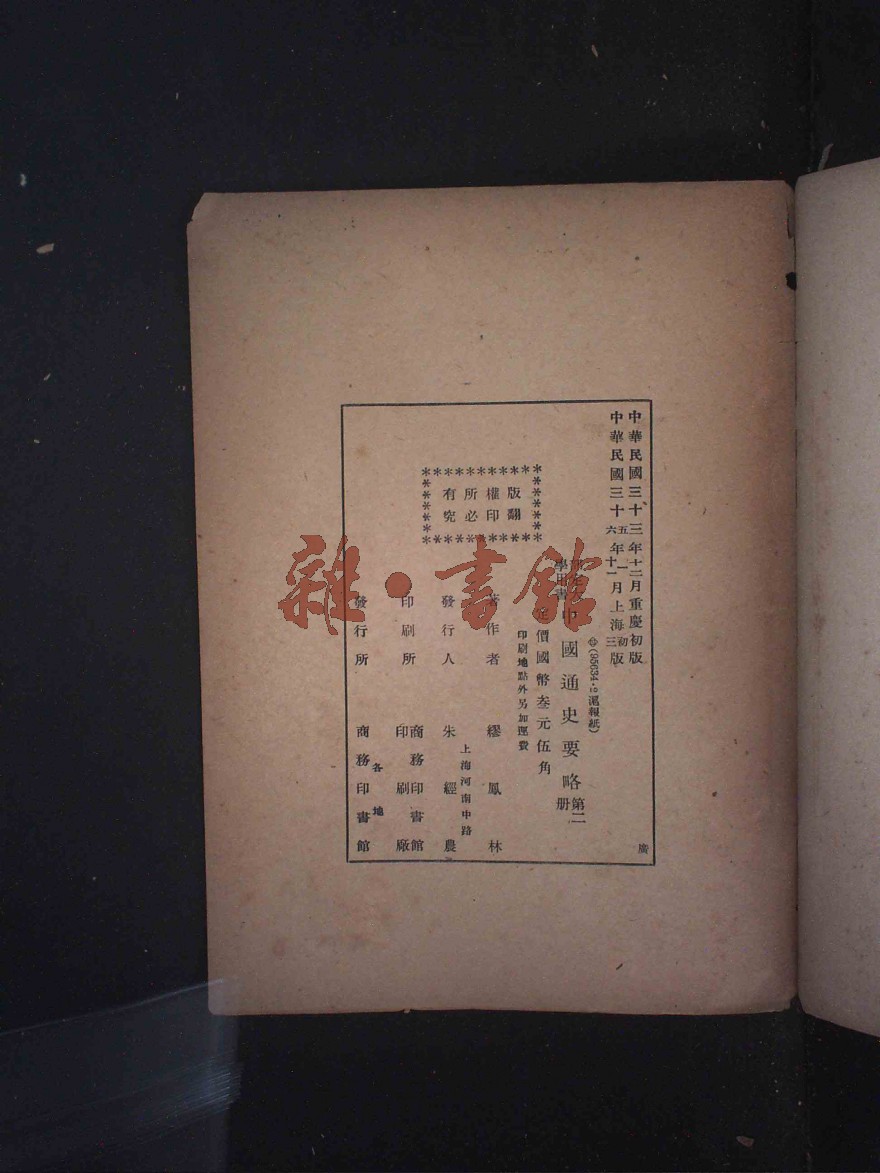 中華民國三十三年十二月重慶初版
中華民國三十五年一月上海初版
六年十一月三版
◎(95634·2滬報紙)
學用書 中國通史要略 第二册
定價國幣叁元伍角
印刷地點外另加運費
版權所有
翻印必究
著作者 繆鳳林
上海河南中路
發行人 朱經農
印刷所 商務印書館印刷廠
各地
發行所 商務印書館
廣
雜·書館